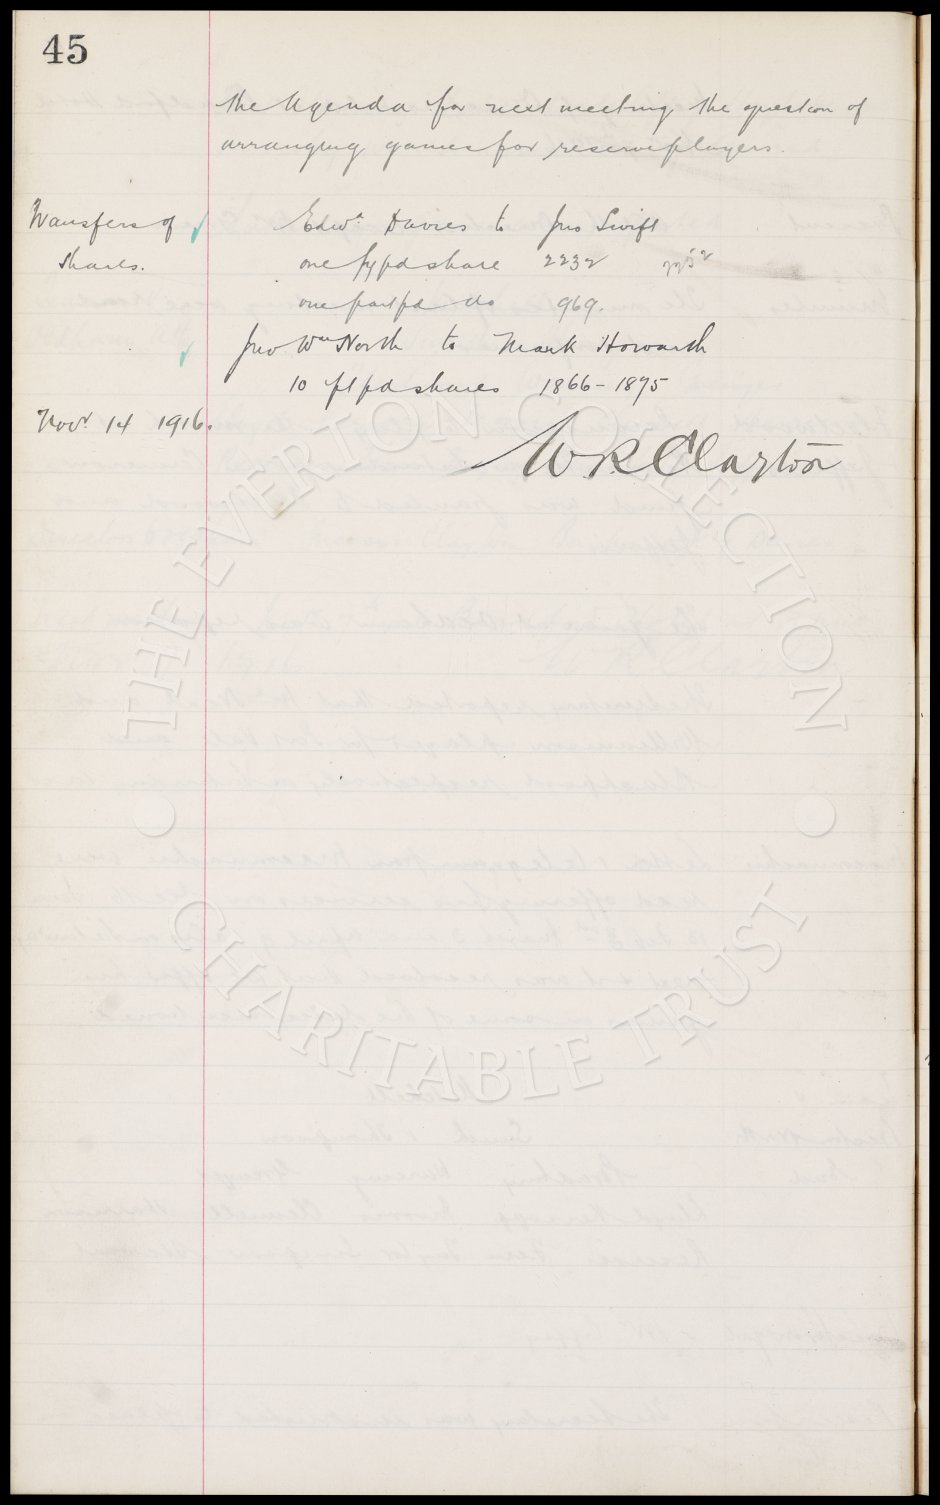 45
the Agenda for next meeting the question of
arranging games for reserve players.
Transfers of
shares.
Edwd Davies to Jno Swift
one fypd share 2232
one partpd do 969.
Jno Wm North to Mark Howarth
10 flpd shares 1866-1875
Novr 14 1916.
WRClayton
THE EVERTON COLLECTION
CHARITABLE TRUST